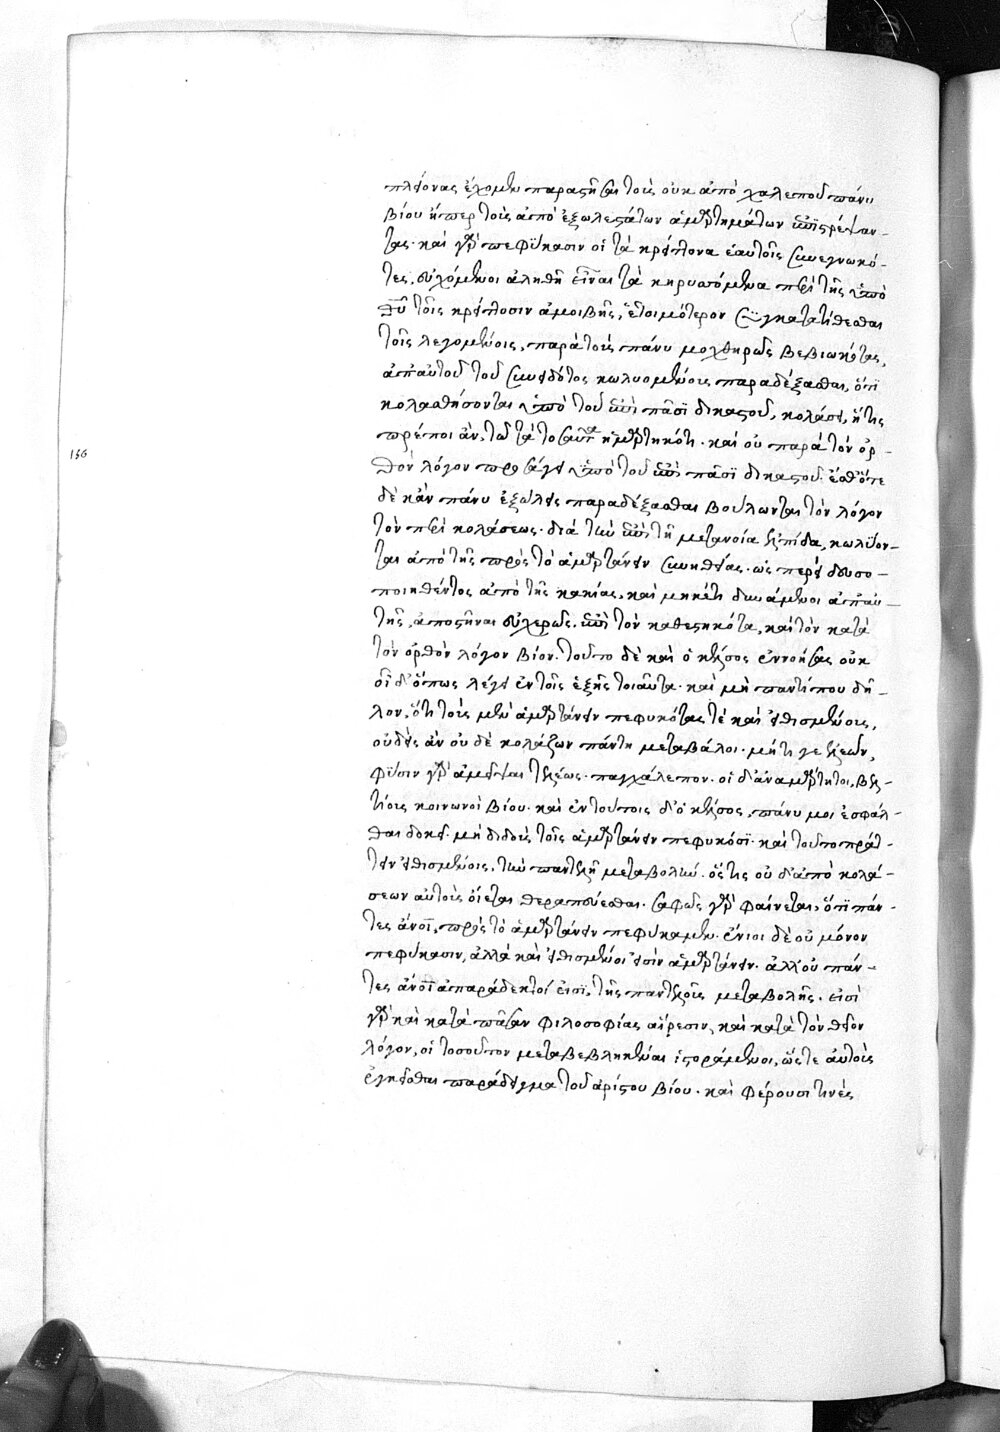 πλείονας ἔχομεν παραστῆσαι τοὺς οὐκ ἀπὸ χαλεποῦ πάνυ
βίου ἤπερ τοὺς ἀπὸ ἐξωλεστάτων ἁμαρτημάτων ἐπιστρέψαν-
τας· καὶ γὰρ πεφύκασιν οἱ τὰ κρείττονα ἑαυτοῖς συνεγνωκό-
τες, εὐχόμενοι ἀληθῆ εἶναι τὰ κηρυττόμενα περὶ τῆς ὑπὸ
θῦ τοῖς κρείττοσιν ἀμοιβῆς, ἑτοιμότερον συγκατατίθεσθαι
τοῖς λεγομένοις, παρὰ τοὺς πάνυ μοχθηρῶς βεβιωκότας,
ἀπ' αὐτοῦ τοῦ συνειδότος κωλυομένους παραδέξασθαι, ὅτι
κολασθήσονται ὑπὸ τοῦ ἐπὶ πᾶσι δικαστοῦ, κολάσει, ἥτις
πρέποι ἂν, τῷ τὰ τοσαῦτα ἡμαρτηκότι· καὶ οὐ παρὰ τὸν ὀρ-
156
θὸν λόγον προσάγει ὑπὸ τοῦ ἐπὶ πᾶσι δικαστοῦ· ἔσθ' ὅτε
δὲ κἂν πάνυ ἐξώλεις παραδέξασθαι βούλωνται τὸν λόγον
τὸν περὶ κολάσεως· διὰ τὴν ἐπὶ τῇ μετανοίᾳ ἐλπίδα, κωλύον-
ται ἀπὸ τῆς πρὸς τὸ ἁμαρτάνειν συνηθείας· ὡσπερεὶ δευσο-
ποιηθέντος ἀπὸ τῆς κακίας, καὶ μηκέτι δυνάμενοι ἀπ' αὐ-
τῆς, ἀποστῆναι εὐχερῶς, ἐπὶ τὸν καθεστηκότα, καὶ τὸν κατὰ
τὸν ὀρθὸν λόγον βίον· τοῦτο δὲ καὶ ὁ κέλσος ἐννοήσας οὐκ
οἶδ' ὅπως λέγει ἐν τοῖς ἑξῆς τοιαῦτα· καὶ μὴν παντί που δῆ-
λον, ὅτι τοὺς μὲν ἁμαρτάνειν πεφυκότας τὲ καὶ εἰθισμένους,
οὐδεὶς ἂν οὐδὲ κολάζων πάντη μεταβάλοι· μήτι γε ἐλεῶν,
φύσιν γὰρ ἀμεῖψαι τελέως· παγχάλεπον· οἱ δ' ἀναμάρτητοι, βελ-
τίους κοινωνοὶ βίου· καὶ ἐν τούτοις δ' ὁ κέλσος, πάνυ μοι ἐσφάλ-
θαι δοκεῖ· μὴ διδοὺς τοῖς ἁμαρτάνειν πεφυκόσι· καὶ τοῦτο πράτ-
τειν εἰθισμένοις, τὴν παντελῆ μεταβολήν· ὅστις οὐδ' ἀπὸ κολά-
σεων αὐτοὺς οἴεται θεραπεύεσθαι· σαφῶς γὰρ φαίνεται, ὅτι πάν-
τες ἄνοι, πρὸς τὸ ἁμαρτάνειν πεφύκαμεν· ἔνιοι δὲ οὐ μόνον
πεφύκασιν, ἀλλὰ καὶ εἰθισμένοι εἰσὶν ἁμαρτάνειν· ἀλλ' οὐ πάν-
τες ἄνοι ἀπαράδεκτοί εἰσι, τῆς παντελοῦς μεταβολῆς· εἰσὶ
γὰρ καὶ κατὰ πᾶσαν φιλοσοφίας αἵρεσιν, καὶ κατὰ τὸν θεῖον
λόγον, οἱ τοσοῦτον μεταβεβληκέναι ἱστοράμενοι, ὥστε αὐτοὺς
ἐγκεῖσθαι παράδειγμα τοῦ ἀρίστου βίου· καὶ φέρουσι τινὲς